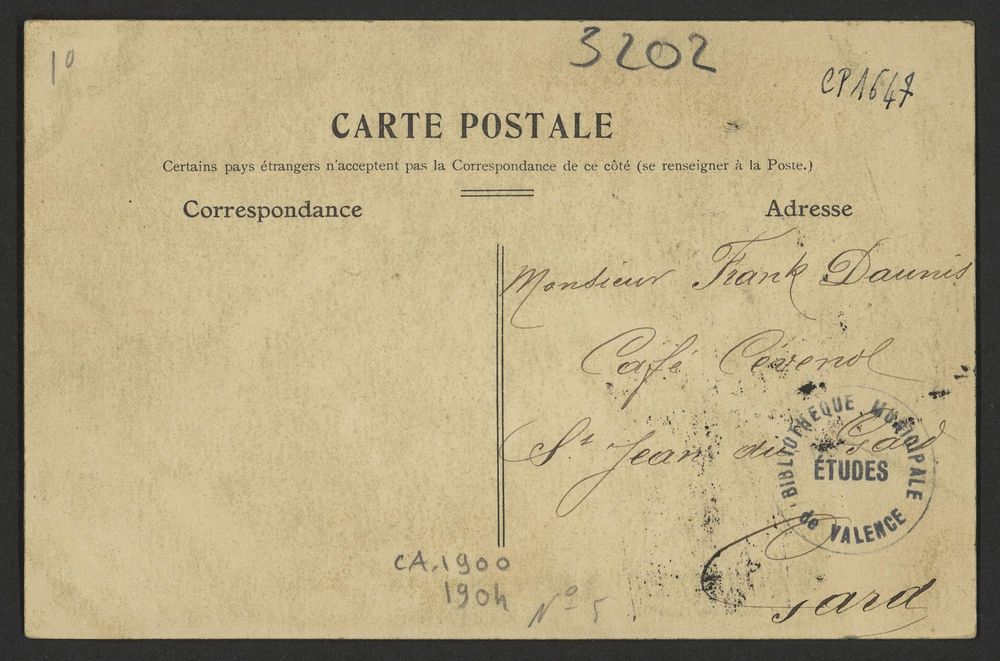 10
3202
CP1647
CARTE POSTALE
Certains pays étrangers n'acceptent pas la Correspondance de ce côté (se renseigner à la Poste.)
Correspondance
Adresse
Monsieur Frank Daunis
Café Cévenol
St Jean du Gard
Gard
BIBLIOTHEQUE MUNICIPALE
ÉTUDES
de VALENCE
CA.1900
1904
N° 5